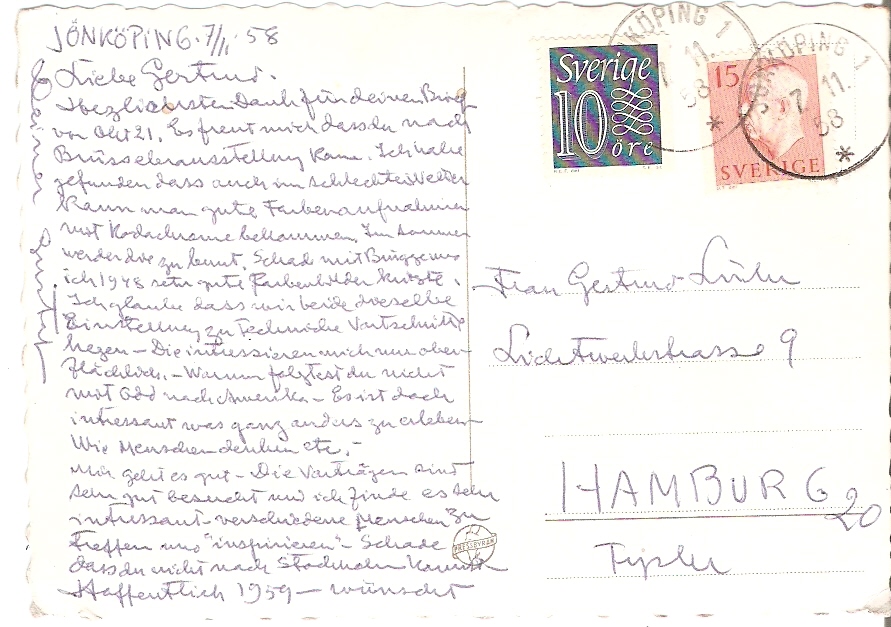 JÖNKÖPING. 7/11 58
Liebe Gertrud.
Herzlichsten Dank für deinen Brief
von Okt 21. Es freut mich dass du nach
Brüsselerausstellung kam. Ich habe
gefunden dass auch im schlechte Wetter
kann man gute Farbenaufnahmen
mit Kodachrome bekommen. Im Sommer
werden die zu bunt. Schad mit Brügge wo
ich 1948 sehr gute Farbenbilder
Ich glaube dass wir beide dieselbe
Einstellung zu Technische Vortschritte
hegen – Die intressieren mich nur ober-
flächlich. – Warum folgtest du nicht
mit Odd nach Amerika – Es ist doch
intressant was ganz anders zu erleben
Wie Menschen denken etc. –
Mir geht es gut – Die Vorträgen sind
sehr gut besucht und ich finde es sehr
intressant verschiedene Menschen zu
treffen und "inspirieren" – Schade
dass du nicht nach Stockholm kannst
Hoffentlich 1959 – wünscht
Deiner
PRESSBYRÅN
Sverige
10
öre
15
SVERIGE
JÖNKÖPING 1
7. 11. 58
JÖNKÖPING 1
7. 11. 58
Frau Gertrud
Lichtwarkstrasse 9
HAMBURG 20